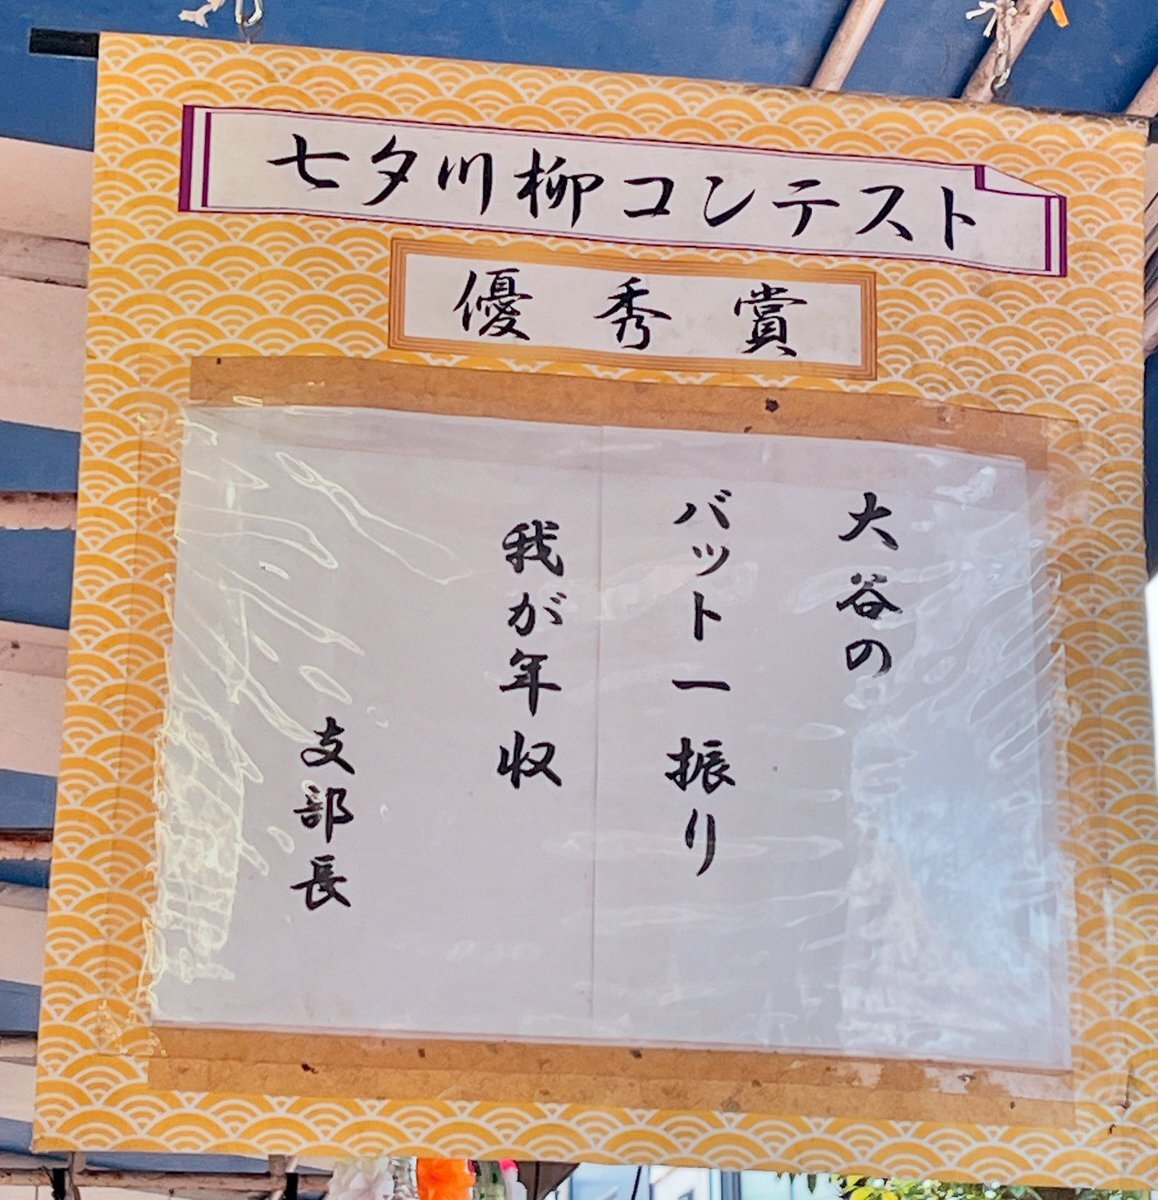 七夕川柳コンテスト
優秀賞
大谷の
バット一振り
我が年収
支部長